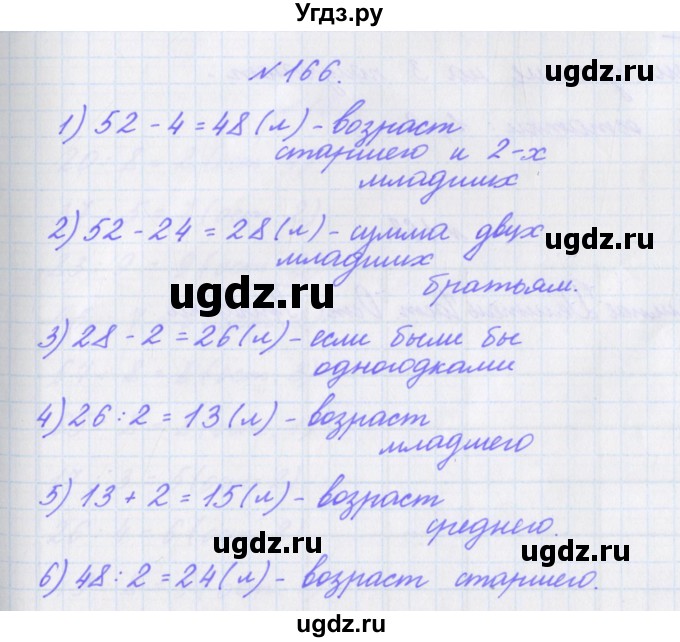 Угдз.ру
№166.
1) 52 - 4 = 48 (л) - возраст
старшего и 2-х
младших
2) 52 - 24 = 28 (л) - сумма двух
младших
братьям.
3) 28 - 2 = 26 (л) - если были бы
одногодками
4) 26 : 2 = 13 (л) - возраст
младшего
5) 13 + 2 = 15 (л) - возраст
среднего.
6) 48 : 2 = 24 (л) - возраст старшего.
ugdz.ru
ugdz.ru
ugdz.ru
ugdz.ru
ugdz.ru
ugdz.ru
ugdz.ru
ugdz.ru